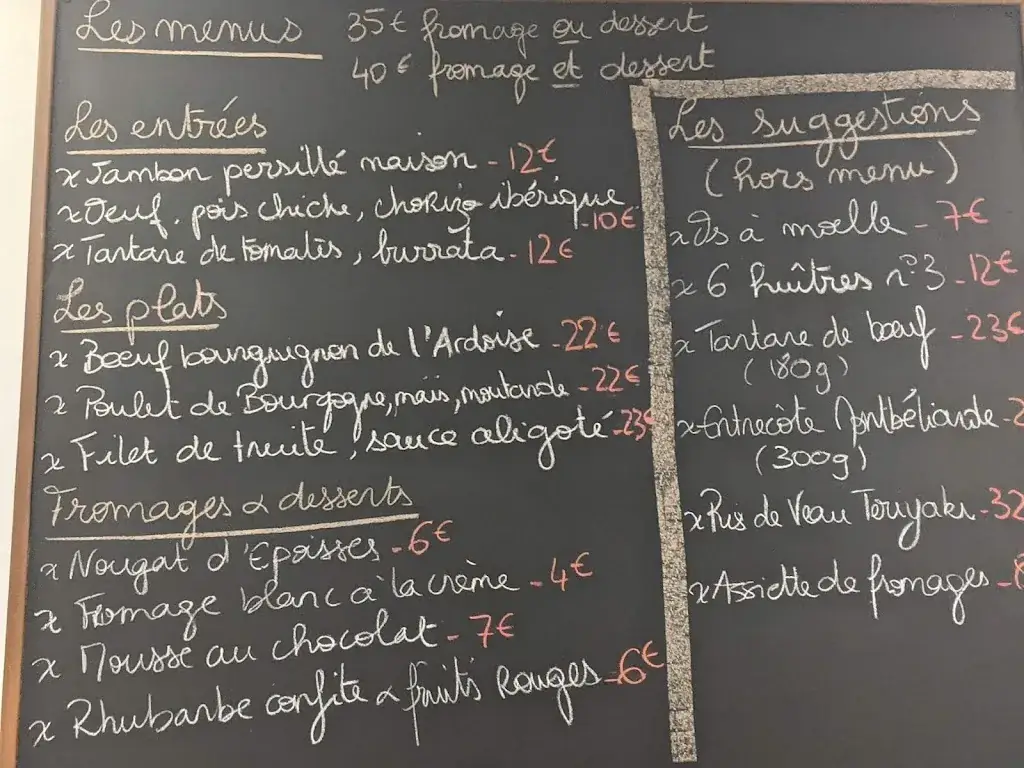 Les menus 35€ fromage ou dessert
40€ fromage et dessert
Les entrées
x Jambon persillé maison - 12€
x Oeuf, pois chiche, chorizo ibérique - 10€
x Tartare de tomates, burrata - 12€
Les plats
x Boeuf bourguignon de l'Ardoise - 22€
x Poulet de Bourgogne, maïs, moutarde - 22€
x Filet de truite, sauce aligoté - 23€
Fromages & desserts
x Nougat d'Epoisses - 6€
x Fromage blanc à la crème - 4€
x Mousse au chocolat - 7€
x Rhubarbe confite & fruits Rouges - 6€
Les suggestions
(hors menu)
x Os à moelle - 7€
x 6 huîtres n°3 - 12€
x Tartare de boeuf - 23€
(180g)
x Entrecôte Montbéliarde -
(300g)
x Ris de Veau Teriyaki - 32
x Assiette de fromages -